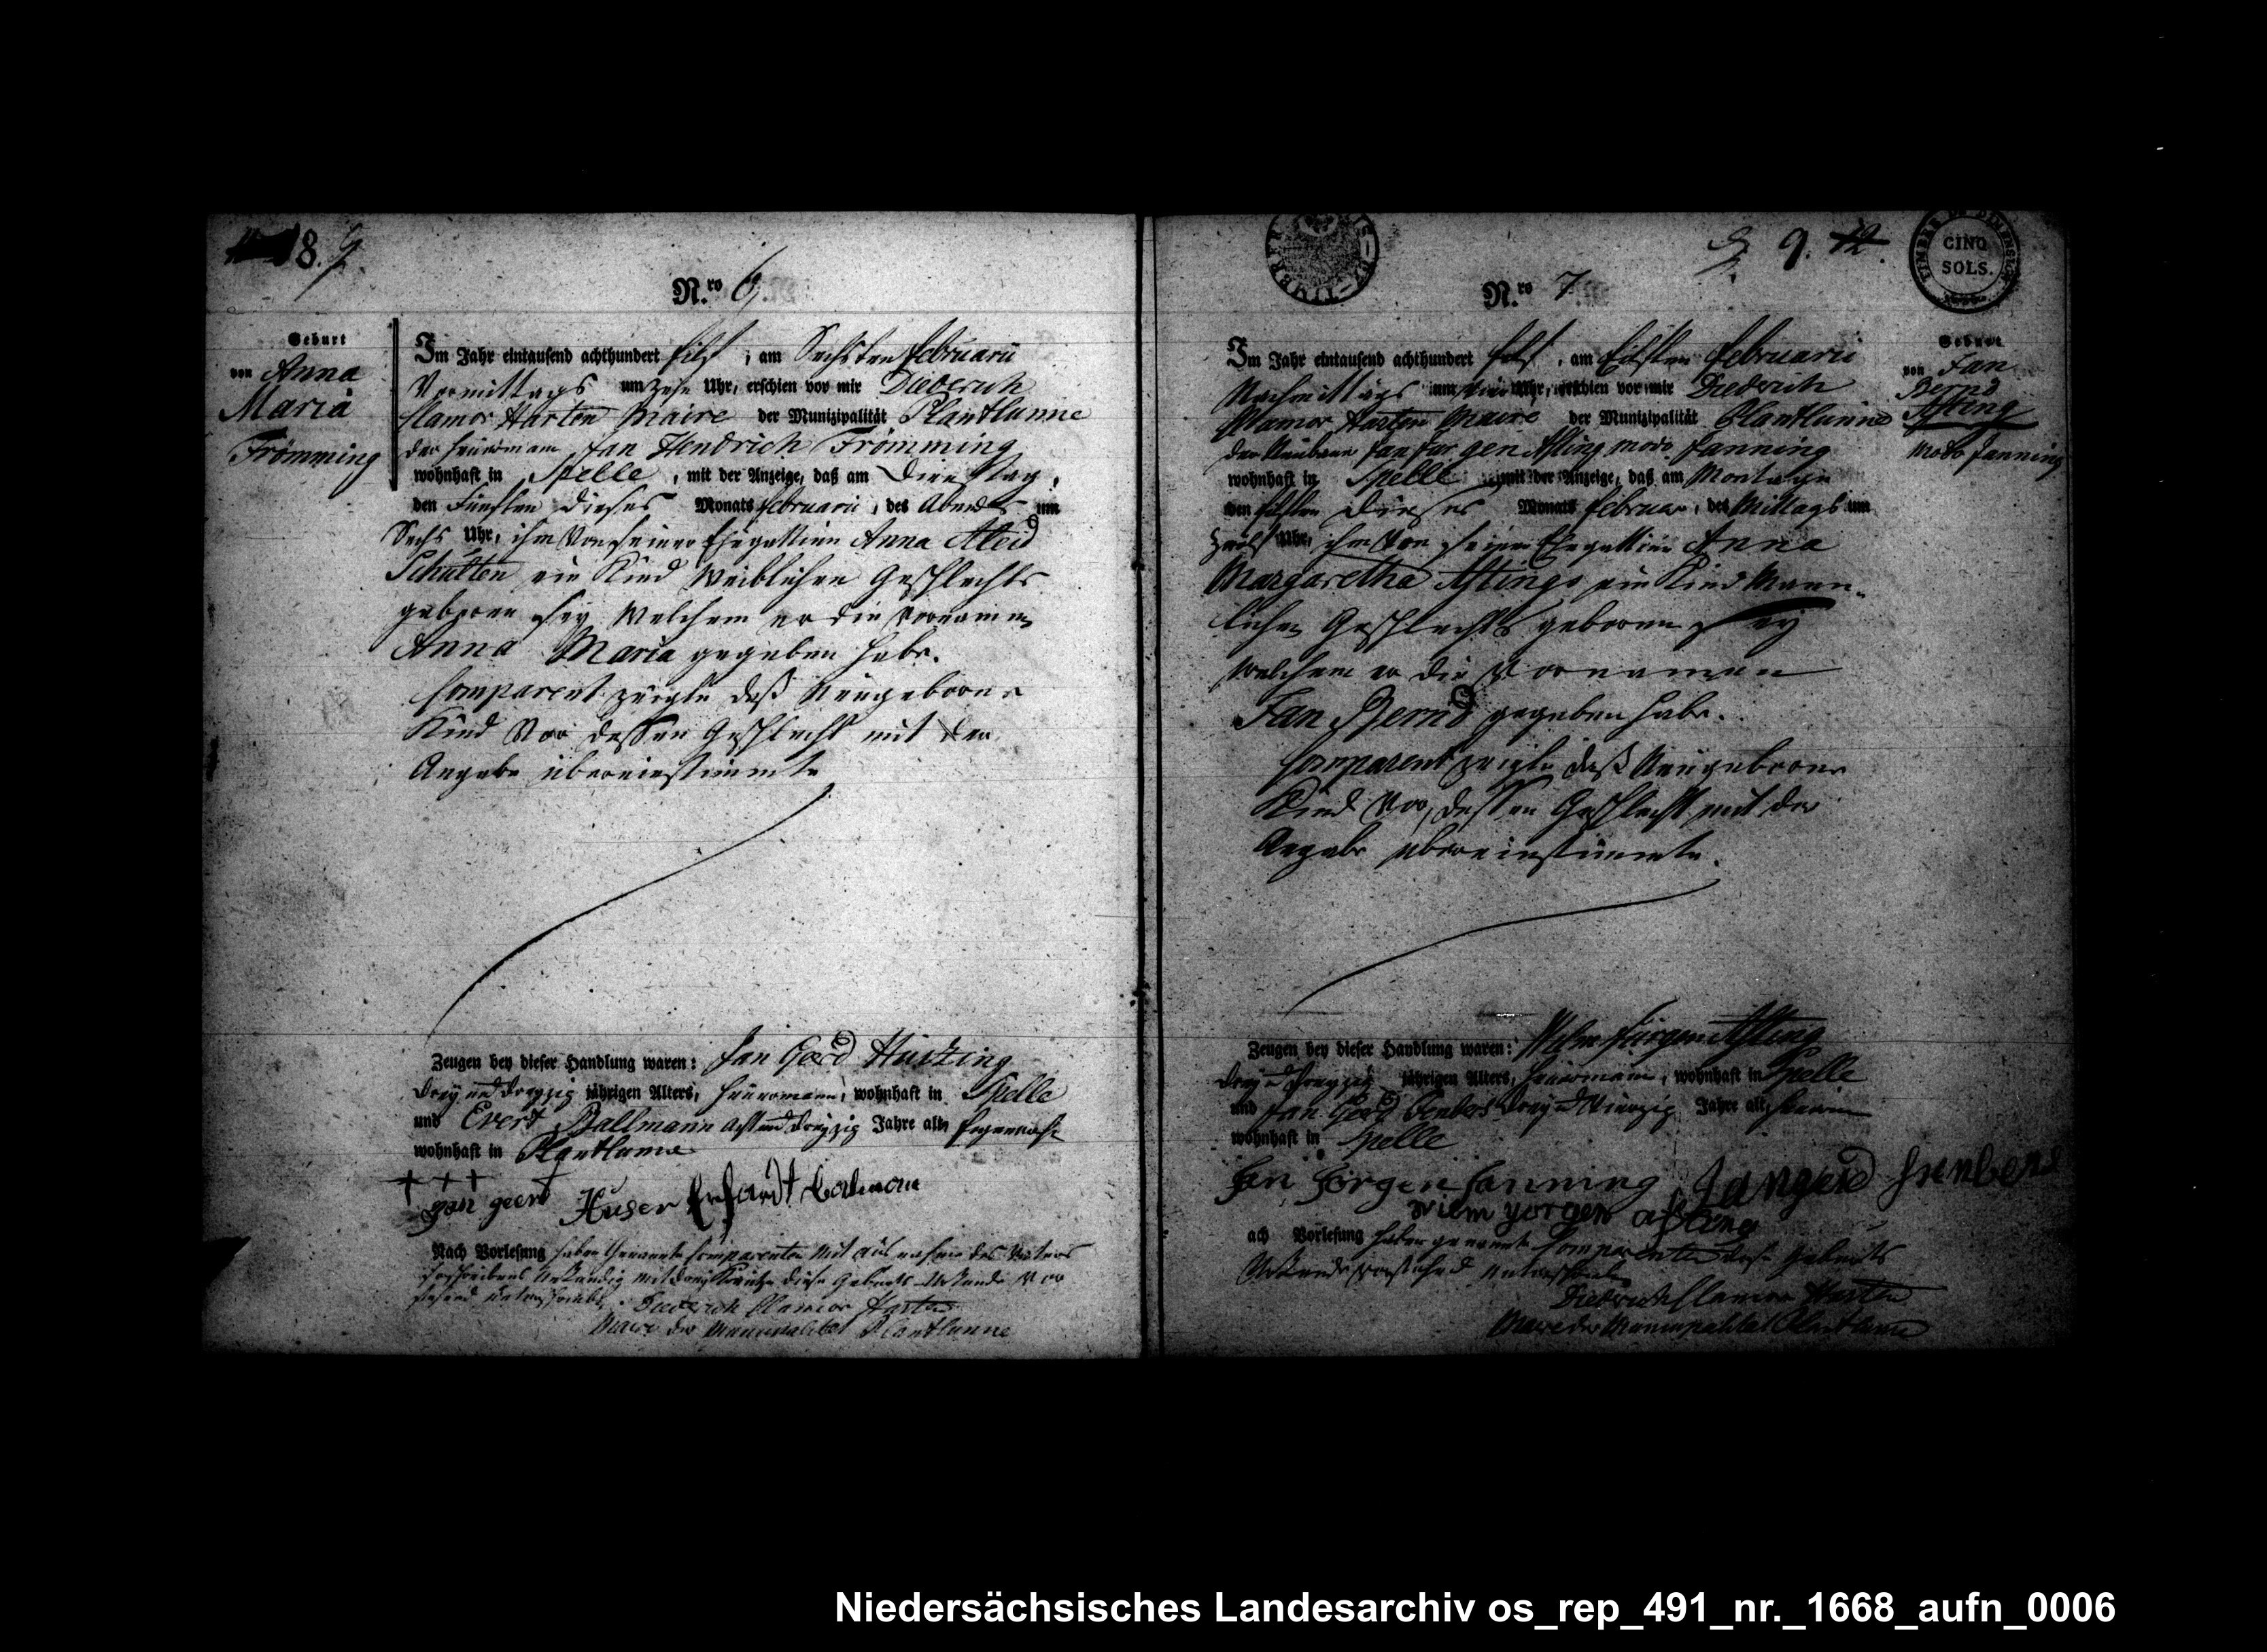 8. 9.
N.ro 6
Geburt
von Anna
Maria
Frömming
Im Jahr eintausend achthundert eilf, am Sechsten Februarii
Vormittags um zehn Uhr, erschien vor mir Diederich
Clamor Harten Maire der Munizipalität Plantlünne
der Heuermann Jan Hendrich Frömming
wohnhaft in Spelle, mit der Anzeige, daß am Dienstag,
den Fünften dieses Monats Februarii, des Abends um
Sechs Uhr, ihm Von seiner Ehegattinn Anna Aleid
Schulten ein Kind Weiblichen Geschlechts
geboren sey Welchem er die Vornamen
Anna Maria gegeben habe.
Comparent zeigte daß Neugeborne
Kind Vor dessen Geschlecht mit der
Angabe übereinstimmte
Zeugen bey dieser Handlung waren: Jan Gerd
Drey und dreyzig jährigen Alters, Heuermann, wohnhaft in Spelle
und Evert Ballmann Acht und dreyzig Jahre alt,
wohnhaft in Plantlünne
+ + +
gan geert Huser
Nach Vorlesung haben Genannte Comparenten Mit
Schreibens Unkundig mit drey Kreutze diese Geburts Urkunde Vor
stehend unterschrieben. Diederich Clamor Harten
Maire der Municipalität Plantlünne
9. 12.
TIMBRE DE DIMENSION
CINQ
SOLS.
N.ro 7
Geburt
von Jan
Bernd
Afting
modo Janning
Im Jahr eintausend achthundert eilf, am Eilften Februarii
Nachmittags um vier Uhr, erschien vor mir Diedrich
Clamor Harten Maire der Munizipalität Plantlünne
der Jan Jürgen Afting modo Janning
wohnhaft in Spelle mit der Anzeige, daß am Montage
den eilften dieses Monats Februar, des Mittags um
Zwölf Uhr, ihm Von seiner Ehegattinn Anna
Margaretha Aftings ein Kind Männ-
lichen Geschlechts geboren sey
Welchem er die Vornamen
Jan Bernd gegeben habe.
Comparent zeigte daß Neugeborne
Kind Vor, dessen Geschlecht mit der
Angabe übereinstimmte.
Zeugen bey dieser Handlung waren: Wilm Jürgen Afting
jährigen Alters, Heuermann, wohnhaft in Spelle
und Jan Gerd drey und Vierzig Jahre alt,
wohnhaft in Spelle
Jan Jörgen Janning
wilm yorgen afting
ach Vorlesung haben genannte Comparenten diese Geburts
Urkunde vorstehend unterschrieben
Diedrich Clamor Harten
Maire der Municipalität Plantlünne
Niedersächsisches Landesarchiv os_rep_491_nr._1668_aufn_0006